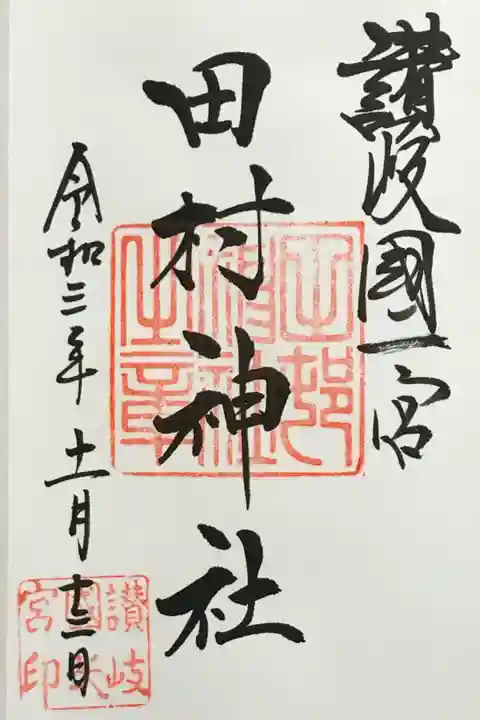 讃岐國一宮
田村神社
令和三年十一月十三日
田邨
神社
之章
讃岐
國弌
宮印